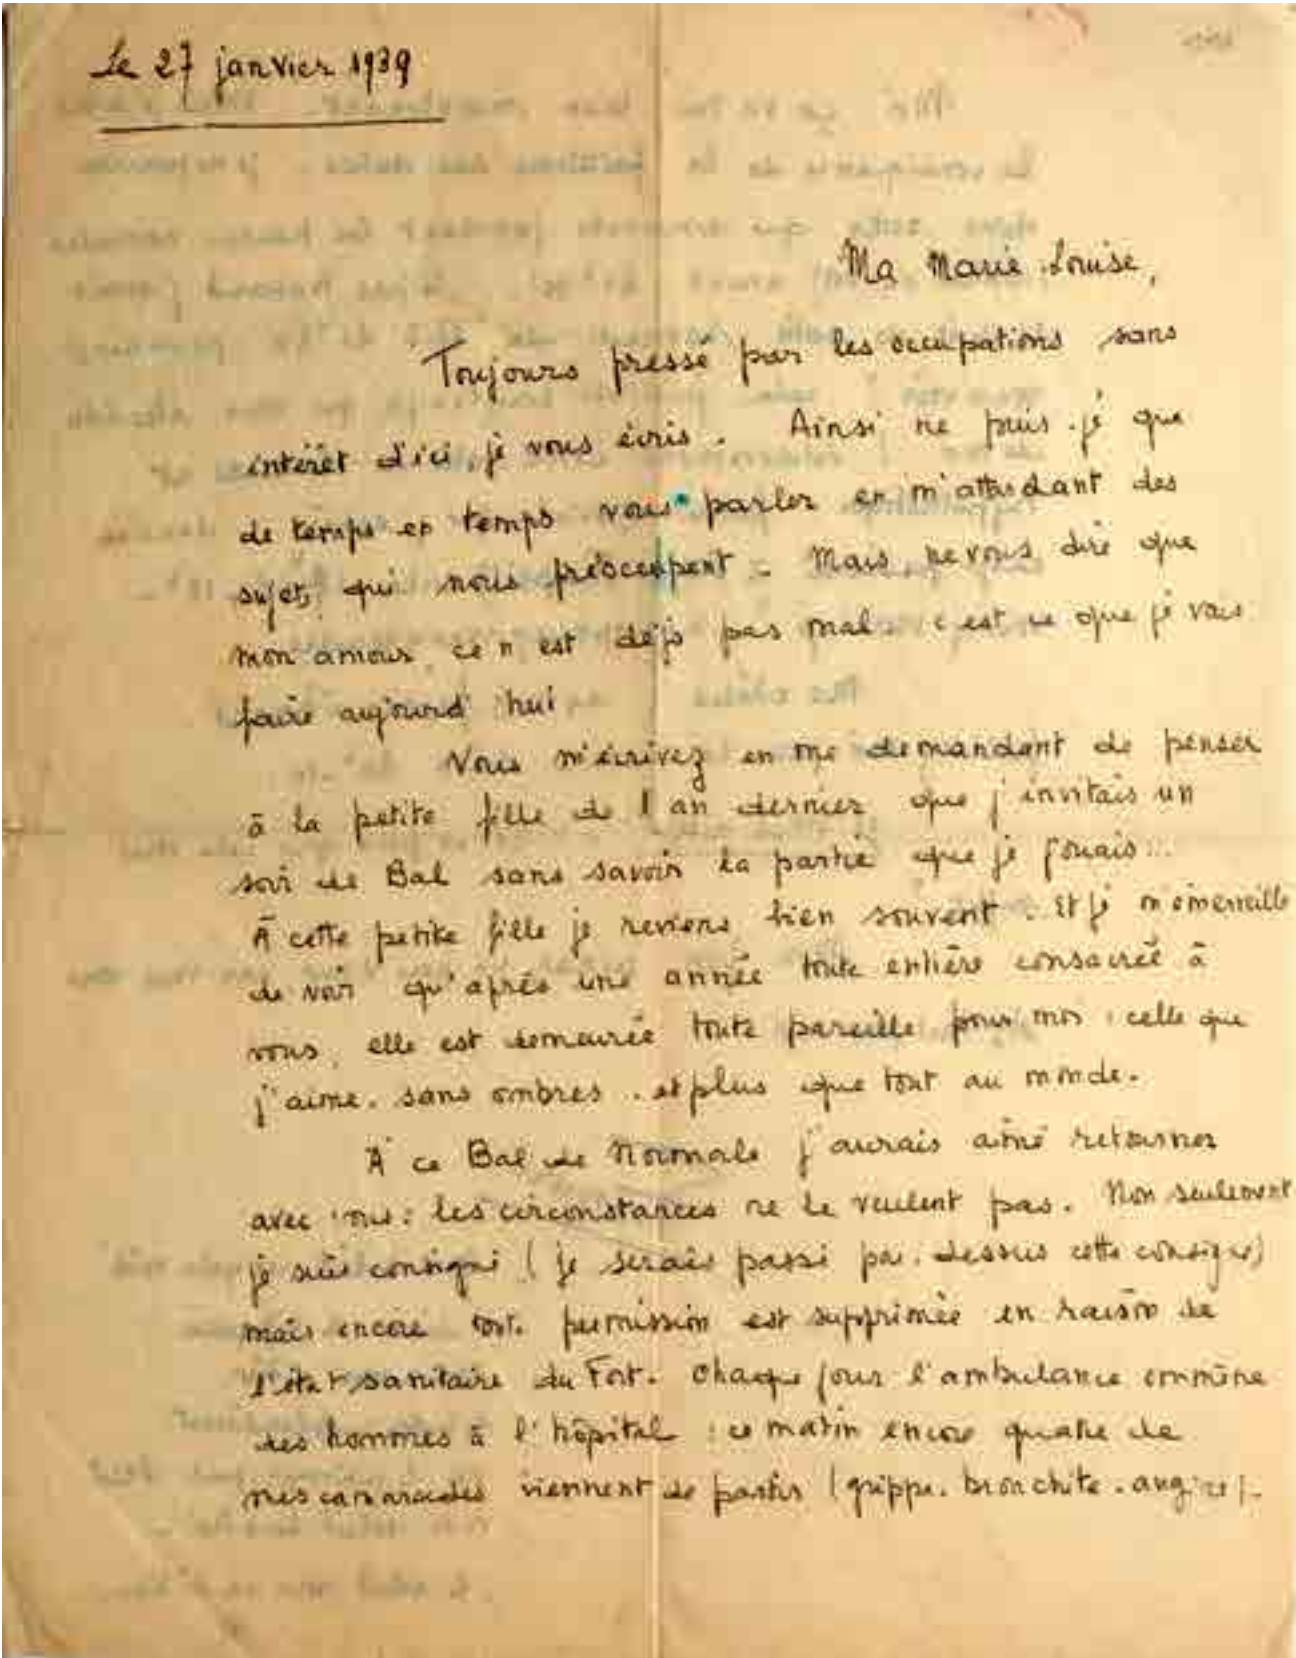 Le 27 janvier 1939
Ma Marie Louise,
Toujours pressé par les occupations sans
intérêt d'ici, je vous écris. Ainsi ne puis-je que
de temps en temps vous parler en m'attardant des
sujets qui nous préoccupent. Mais ne vous dire que
mon amour, ce n'est déjà pas mal. c'est ce que je vais
faire aujourd'hui
Vous m'écrivez en me demandant de penser
à la petite fille de l'an dernier que j'invitais un
soir de Bal sans savoir la partie que je jouais...
À cette petite fille je reviens bien souvent. Et je m'émerveille
de voir qu'après une année toute entière consacrée à
vous, elle est demeurée toute pareille pour moi : celle que
j'aime. sans ombres. et plus que tout au monde.
À ce Bal de Normale j'aurais aimé retourner
avec vous : les circonstances ne le veulent pas. Non seulement
je suis consigné (je serais passé par dessus cette consigne)
mais encore toute permission est supprimée en raison de
l'état sanitaire du Fort. Chaque jour l'ambulance emmène
des hommes à l'hôpital : ce matin encore quatre de
mes camarades viennent de partir (grippe. bronchite. angine).